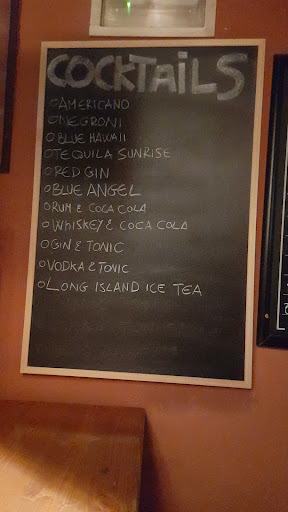 COCKTAiLS
o AMERICANO
o NEGRONI
o BLUE HAWAII
o TEQUILA SUNRISE
o RED GIN
o BLUE ANGEL
o RUM & COCA COLA
o WHISKEY & COCA COLA
o GIN & TONIC
o VODKA & TONIC
o LONG ISLAND ICE TEA